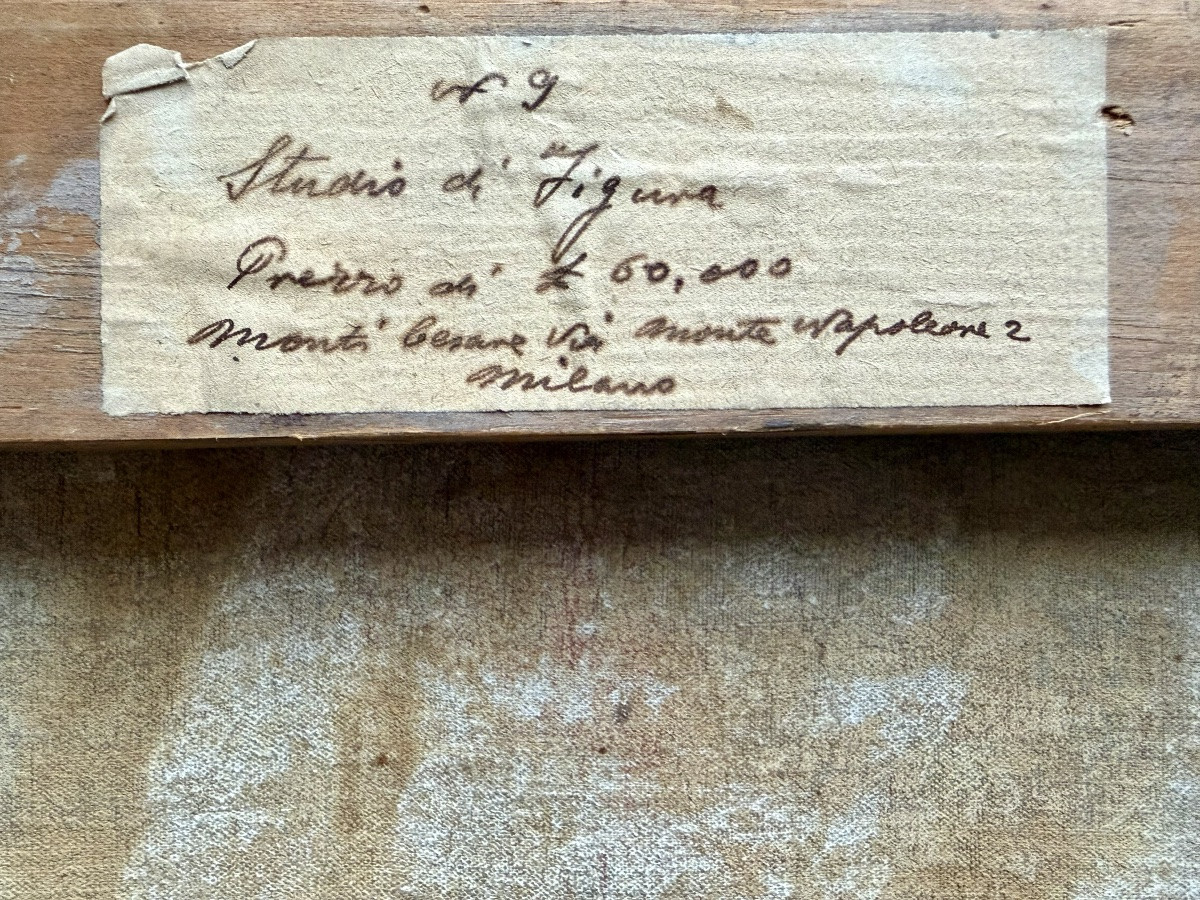 N 9
Studio di Figura
Prezzo di £ 60,000
Monti Cesare Via Monte Napoleone 2
Milano